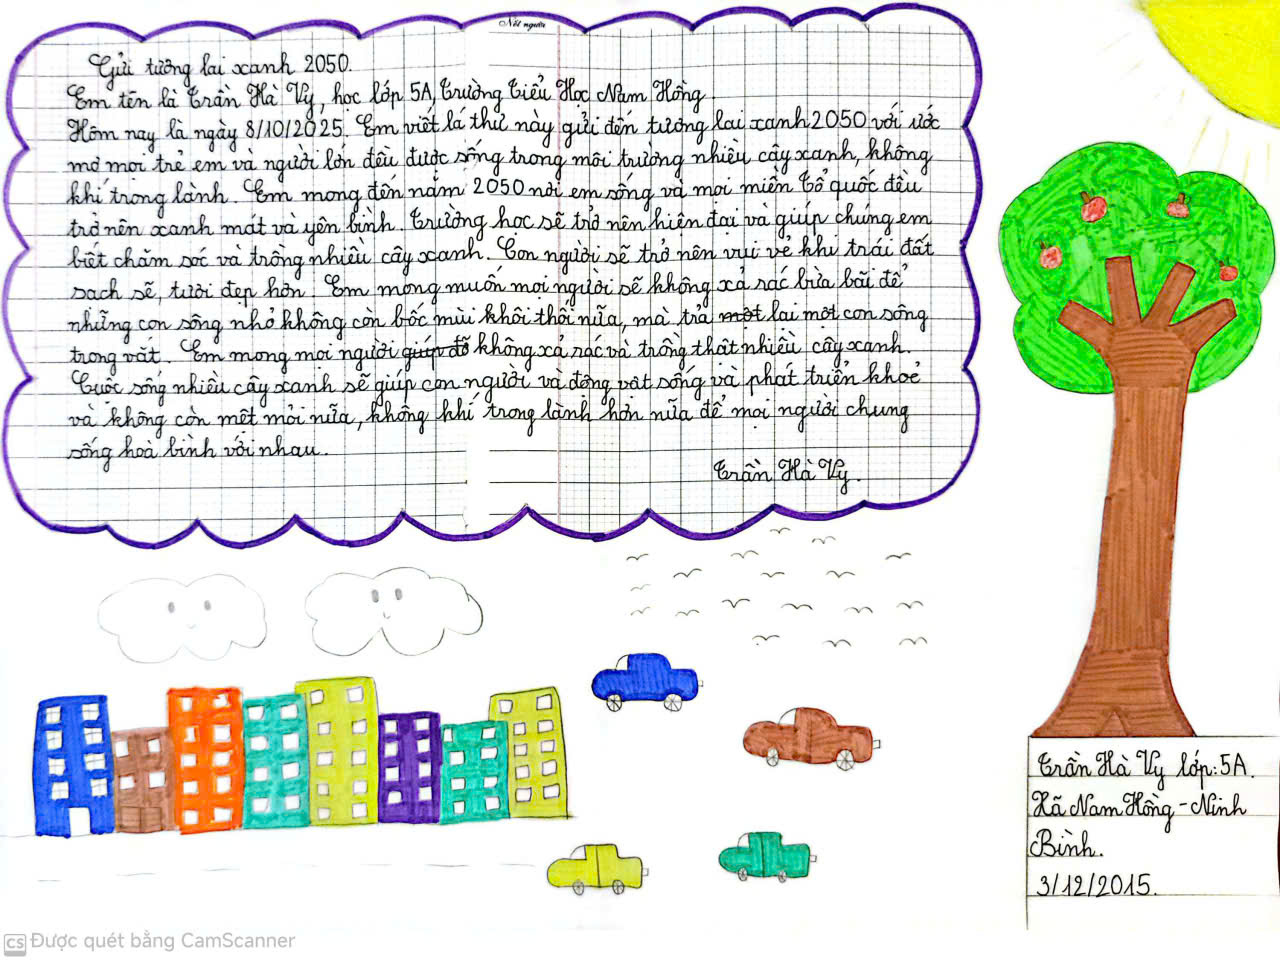 Nét người
Gửi tương lai xanh 2050.
Em tên là Trần Hà Vy, học lớp 5A, Trường Tiểu Học Nam Hồng.
Hôm nay là ngày 8/10/2025. Em viết lá thư này gửi đến tương lai xanh 2050 với ước
mơ mọi trẻ em và người lớn đều được sống trong môi trường nhiều cây xanh, không
khí trong lành. Em mong đến năm 2050 nơi em sống và mọi miền Tổ quốc đều
trở nên xanh mát và yên bình. Trường học sẽ trở nên hiện đại và giúp chúng em
biết chăm sóc và trồng nhiều cây xanh. Con người sẽ trở nên vui vẻ khi trái đất
sạch sẽ, tươi đẹp hơn. Em mong muốn mọi người sẽ không xả rác bừa bãi để
những con sông nhỏ không còn bốc mùi khôi thối nữa, mà trả một lại một con sông
trong vắt. Em mong mọi người giúp đỡ không xả rác và trồng thật nhiều cây xanh.
Cuộc sống nhiều cây xanh sẽ giúp con người và động vật sống và phát triển khoẻ
và không còn mệt mỏi nữa, không khí trong lành hơn nữa để mọi người chung
sống hoà bình với nhau.
Trần Hà Vy.
Trần Hà Vy lớp: 5A.
Xã Nam Hồng - Ninh
Bình.
3/12/2015.
CS Được quét bằng CamScanner